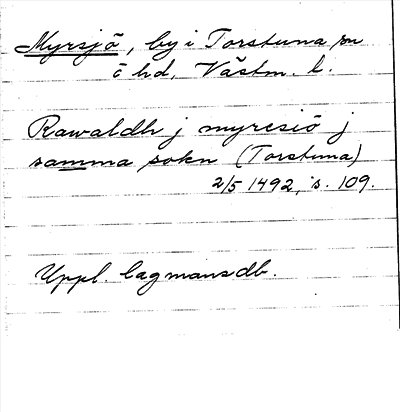 Myrsjö, by i Torstuna sn
o hd, Västm. l.
Rawaldh j myresiö j
samma sokn (Torstuna)
2/5 1492, s. 109.
Uppl. lagmansdb.